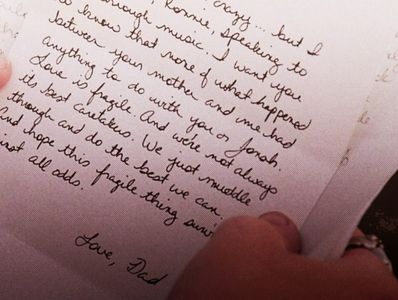 crazy... but I
Ronnie, speaking to
through music. I want you
to know that none of what happened
between your mother and me had
anything to do with you or Jonah.
Love is fragile. And we're not always
its best caretakers. We just muddle
through and do the best we can.
And hope this fragile thing survi
inst all odds.
Love, Dad